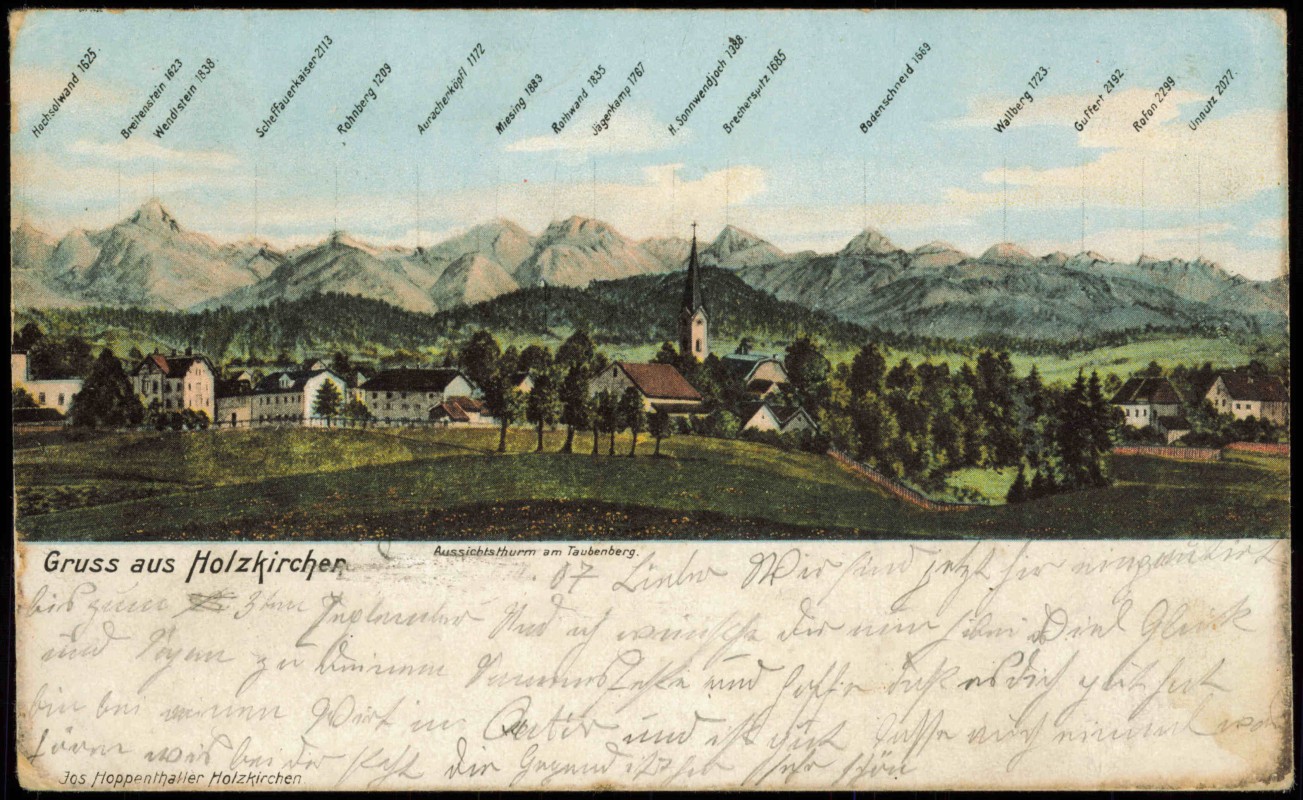 Hochsalwand 1625.
Breitenstein 1623
Wendlstein 1838.
Scheffauerkaiser 2113
Rohnberg 1209
Auracherköpfl 1172
Miesing 1883
Rothwand 1835
Jägerkamp 1767
H. Sonnwendjoch 1388.
Brecherspitz 1685
Bodenschneid 1669
Wallberg 1723.
Guffert 2192
Rofon 2299
Unnutz 2077.
Gruss aus Holzkirchen
Aussichtsthurm am Taubenberg.
07 Lieber Wir sind jetzt hir einquatirt
bis zum 3ten September Und ich wünsche dir nun Viel Glück
und Segen zu deinem und hoffe daß es dich
bin bei einen Wirt in Quatir und ist gut
wie bei der die Gegend ist hir sehr schön
Jos Hoppenthaller Holzkirchen